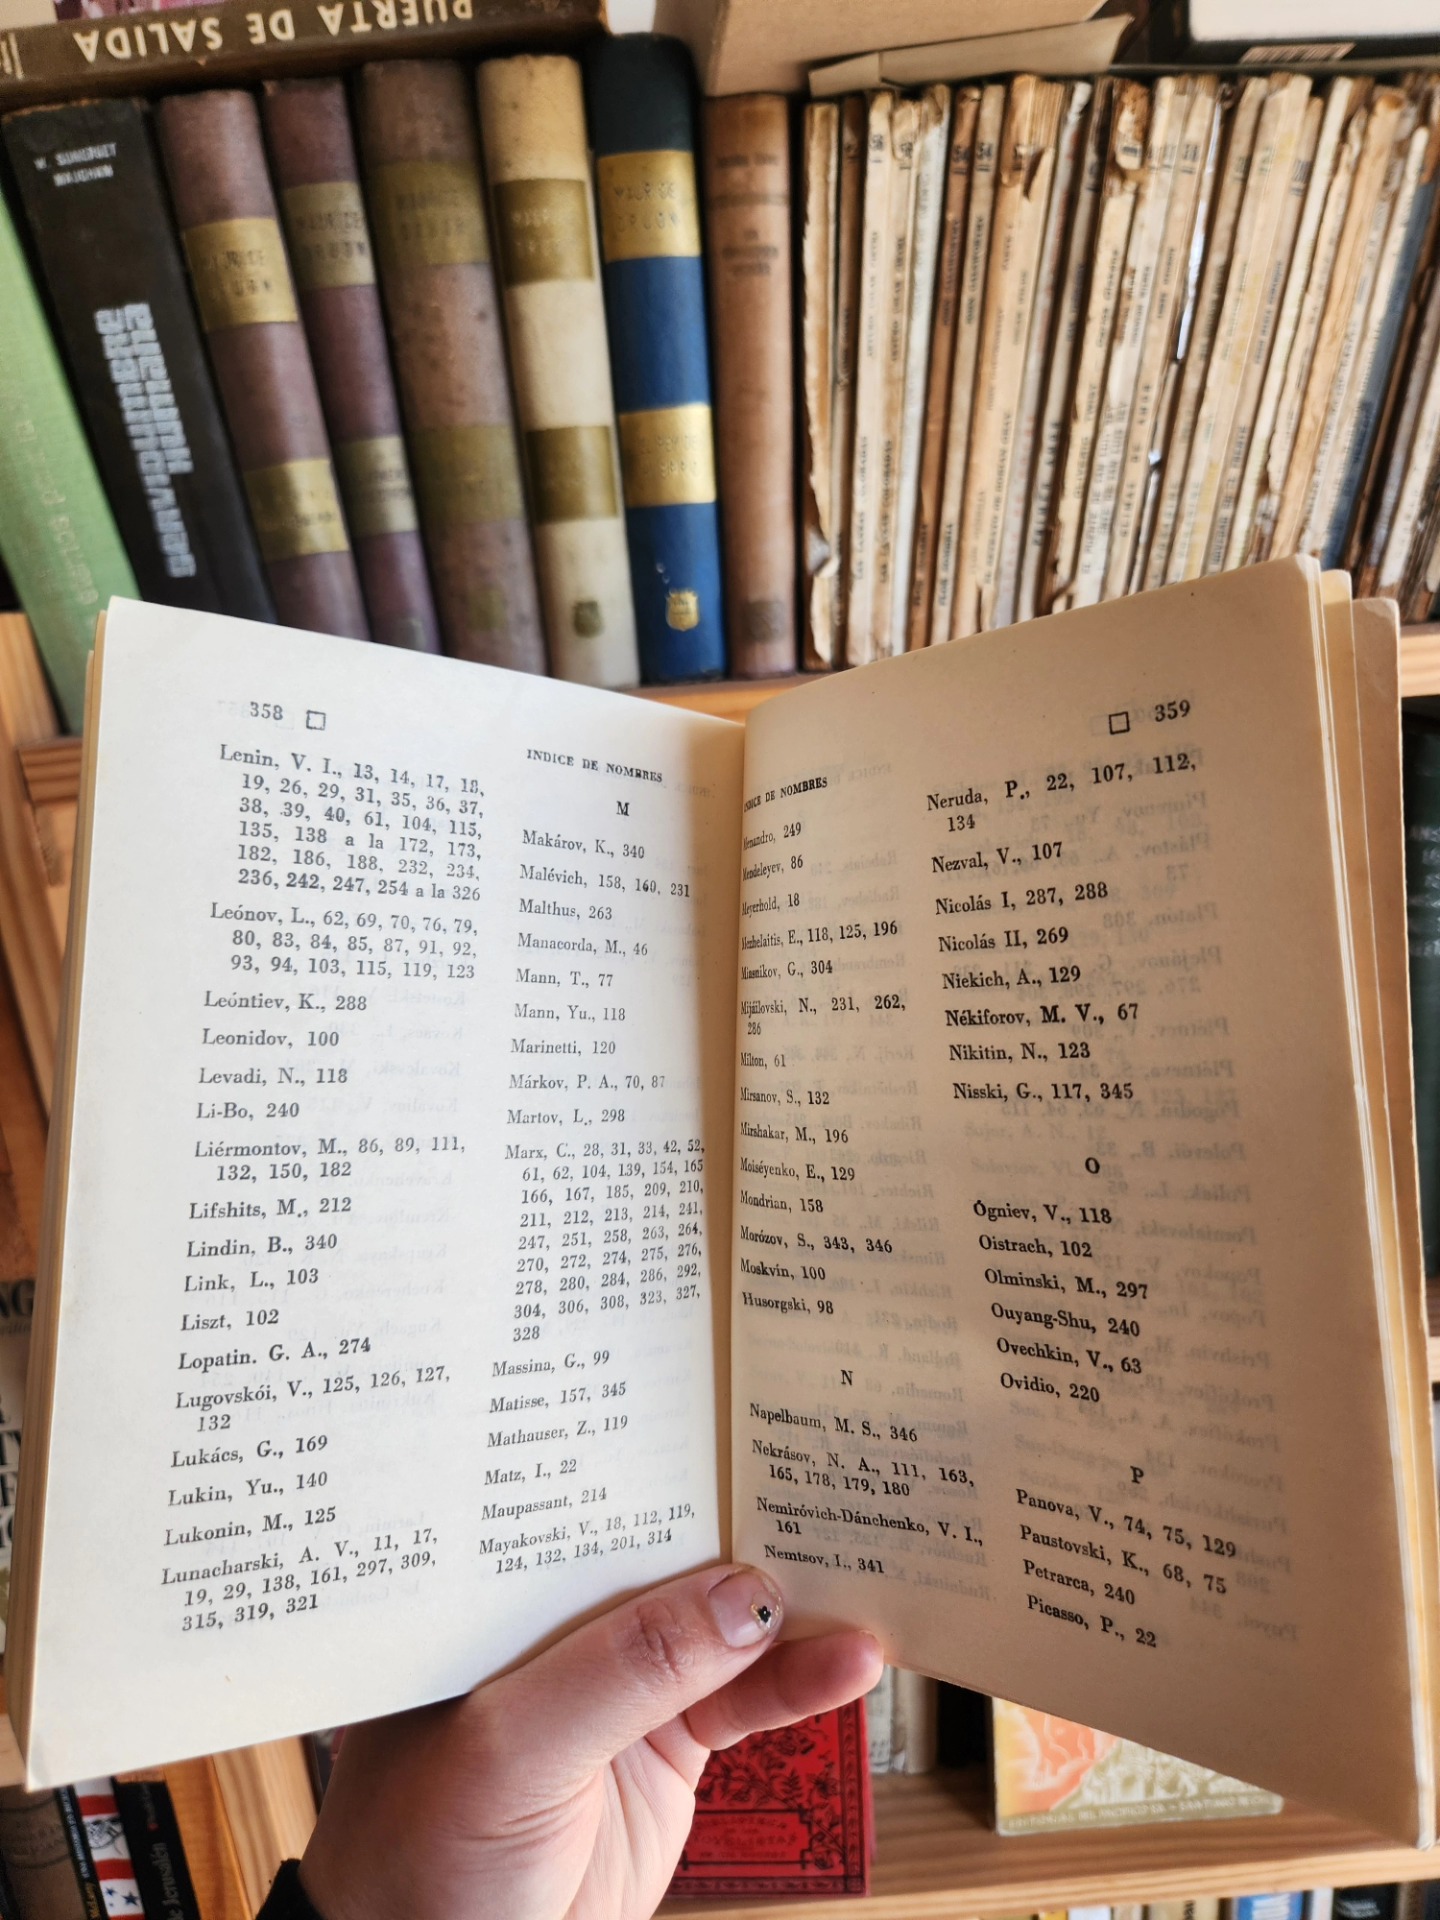 PUERTA DE SALIDA
W. SOMERSET
MAUGHAM
MAURICE
DRUON
MAURICE
DRUON
MAURICE
DRUON
358
Lenin, V. I., 13, 14, 17, 18,
19, 26, 29, 31, 35, 36, 37,
38, 39, 40, 61, 104, 115,
135, 138 a la 172, 173,
182, 186, 188, 232, 234,
236, 242, 247, 254 a la 326
Leónov, L., 62, 69, 70, 76, 79,
80, 83, 84, 85, 87, 91, 92,
93, 94, 103, 115, 119, 123
Leóntiev, K., 288
Leonidov, 100
Levadi, N., 118
Li-Bo, 240
Liérmontov, M., 86, 89, 111,
132, 150, 182
Lifshits, M., 212
Lindin, B., 340
Link, L., 103
Liszt, 102
Lopatin. G. A., 274
Lugovskói, V., 125, 126, 127,
132
Lukács, G., 169
Lukin, Yu., 140
Lukonin, M., 125
Lunacharski, A. V., 11, 17,
19, 29, 138, 161, 297, 309,
315, 319, 321
INDICE DE NOMBRES
M
Makárov, K., 340
Malévich, 158, 160, 231
Malthus, 263
Manacorda, M., 46
Mann, T., 77
Mann, Yu., 118
Marinetti, 120
Márkov, P. A., 70, 87
Martov, L., 298
Marx, C., 28, 31, 33, 42, 52,
61, 62, 104, 139, 154, 165
166, 167, 185, 209, 210,
211, 212, 213, 214, 241,
247, 251, 258, 263, 264,
270, 272, 274, 275, 276,
278, 280, 284, 286, 292,
304, 306, 308, 323, 327,
328
Massina, G., 99
Matisse, 157, 345
Mathauser, Z., 119
Matz, I., 22
Maupassant, 214
Mayakovski, V., 18, 112, 119,
124, 132, 134, 201, 314
359
INDICE DE NOMBRES
Menandro, 249
Mendeleyev, 86
Meyerhold, 18
Mezhelaitis, E., 118, 125, 196
Miasnikov, G., 304
Mijáilovski, N., 231, 262,
286
Milton, 61
Mirsanov, S., 132
Mirshakar, M., 196
Moiséyenko, E., 129
Mondrian, 158
Morózov, S., 343, 346
Moskvín, 100
Husorgski, 98
N
Napelbaum, M. S., 346
Nekrásov, N. A., 111, 163,
165, 178, 179, 180
Nemiróvich-Dánchenko, V. I.,
161
Nemtsov, I., 341
Neruda, P., 22, 107, 112,
134
Nezval, V., 107
Nicolás I, 287, 288
Nicolás II, 269
Niekich, A., 129
Nékiforov, M. V., 67
Nikitin, N., 123
Nisski, G., 117, 345
O
Ógniev, V., 118
Oistrach, 102
Olminski, M., 297
Ouyang-Shu, 240
Ovechkin, V., 63
Ovidio, 220
P
Panova, V., 74, 75, 129
Paustovski, K., 68, 75
Petrarca, 240
Picasso, P., 22